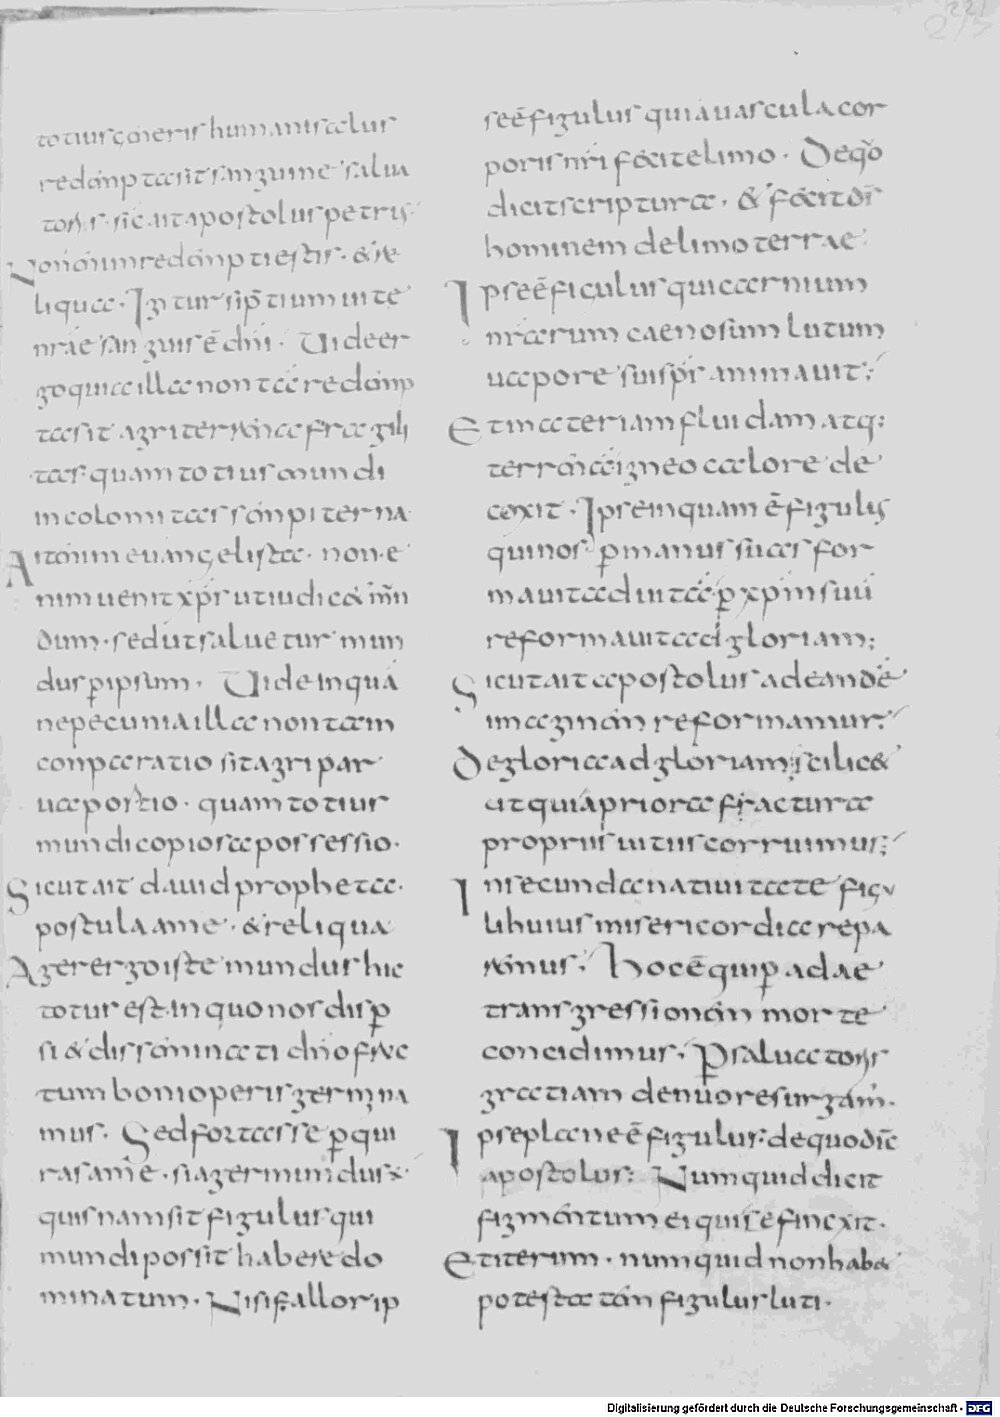 totius generis humani salus
redempta sit sanguine salua
toris. sic ait apostolus petrus.
Non enim redempti estis. & re
liqua. Igitur si p̄tium uitę
nr̄ae sanguis ē dn̄i. Uide er
go qui a illa non tā redemp
ta sit agri terrena fragili
tas quam totius mundi
incolomitas sempiterna
Ait enim euangelista. non e
nim uenit xp̄s ut iudic& mū
dum. sed ut saluetur mun
dus p̄ ipsum. Uide inqua
ne pecunia illa non tam
conparatio sit agri par
ua portio. quam totius
mundi copiosa possessio.
Sicut ait dauid propheta.
postula a me. & reliqua
Ager ergo iste mundus hic
totus est. in quo nos disp̄
si & disseminati dn̄o fruc
tum boni operis germina
mus. Sed fortasse p̄qui
ras a me. si ager mundus.
quisnam sit figulus qui
mundi possit habere do
minatum. Nisi fallor ip
se ē figulus qui a uascula cor
poris nr̄i fecit e limo. De quo
dicit scriptura. & fecit d̄s
hominem de limo terrae.
Ipse ē figulus qui carnium
nr̄arum caenosum lutum
uapore sui sp̄s animauit;
Et materiam fluidam atq;
terrenā igneo calore de
coxit. Ipse inquam ē figulus
qui nos p̄ manus suas for
mauit ad uitā. p̄ xp̄m suū
reformauit ad gloriam;
Sicut ait apostolus ad eandē
imaginem reformamur;
De gloria ad gloriam. scilic&
ut qui a priora fractura
propriis uitiis corruimus;
In secunda natiuitate figu
li huius misericordia repa
remus; Hoc ē qui p̄ adae
transgressionem morte
concidimus. P̄ saluatoris
gratiam denuo resurgam̄.
Ipse plane ē figulus. de quo dic̄
apostolus: Numquid dicit
figmentum ei qui se finexit.
Et iterum. numquid non hab&
potestatem figulus luti.